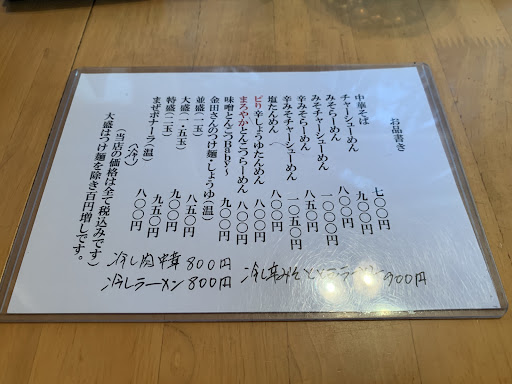 お品書き
中華そば 七〇〇円
チャーシューめん 九〇〇円
みそらーめん 八〇〇円
みそチャーシューめん 一〇〇〇円
辛みそらーめん 八五〇円
辛みそチャーシューめん 一〇五〇円
塩たんめん 八〇〇円
ピリ辛しょうゆたんめん 八〇〇円
まろやかとんこつらーめん 八〇〇円
味噌とんこつBaby〜 九〇〇円
金田さんのつけ麺・しょうゆ(温)
並盛(一玉) 八〇〇円
大盛(一・五玉) 八五〇円
特盛(二玉) 九〇〇円
まぜボナーラ(温) 九五〇円
(ハーフ) 八〇〇円
(当店の価格は全て税込みです)
大盛はつけ麺を除き百円増しです。
冷し肉中華 800円
冷しラーメン 800円
冷し辛みそ 900円